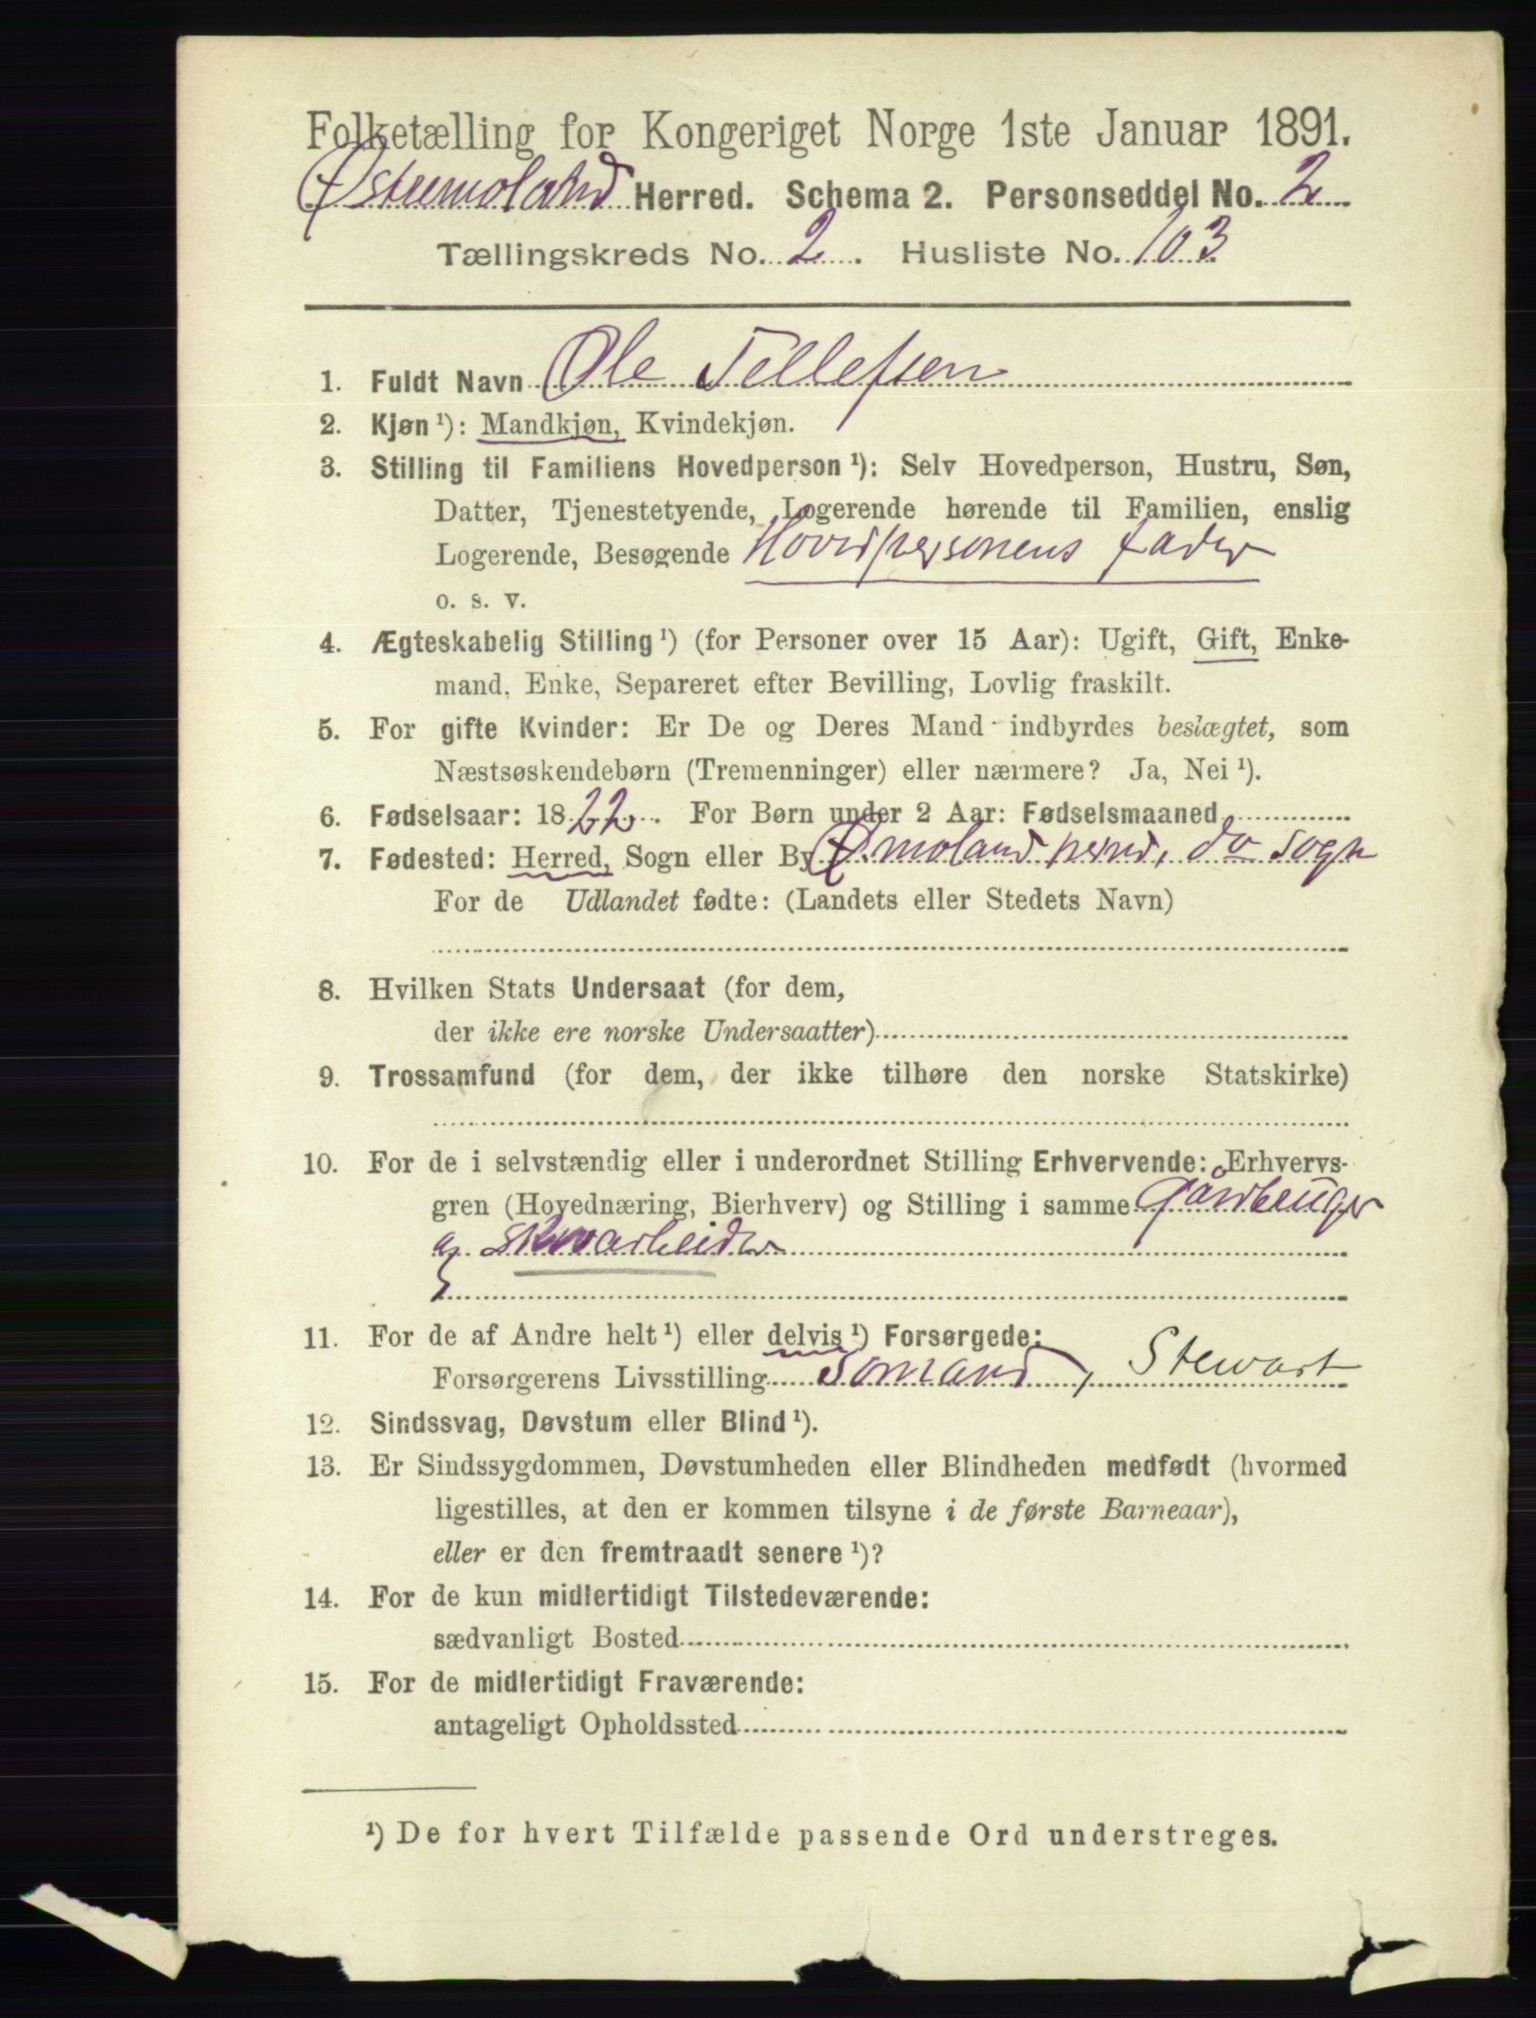 Folketælling for Kongeriget Norge 1ste Januar 1891.
Østremoland Herred. Schema 2. Personseddel No. 2
Tællingskreds No. 2. Husliste No. 103
1. Fuldt Navn Ole Tellefsen
2. Kjøn ¹): Mandkjøn, Kvindekjøn.
3. Stilling til Familiens Hovedperson ¹): Selv Hovedperson, Hustru, Søn,
Datter, Tjenestetyende, Logerende hørende til Familien, enslig
Logerende, Besøgende Hovedpersonens fader
o. s. v.
4. Ægteskabelig Stilling ¹) (for Personer over 15 Aar): Ugift, Gift, Enke-
mand, Enke, Separeret efter Bevilling, Lovlig fraskilt.
5. For gifte Kvinder: Er De og Deres Mand indbyrdes beslægtet, som
Næstsøskendebørn (Tremenninger) eller nærmere? Ja, Nei ¹).
6. Fødselsaar: 1822. For Børn under 2 Aar: Fødselsmaaned
7. Fødested: Herred, Sogn eller By Ømoland herred, do sogn
For de Udlandet fødte: (Landets eller Stedets Navn)
8. Hvilken Stats Undersaat (for dem,
der ikke ere norske Undersaatter)
9. Trossamfund (for dem, der ikke tilhøre den norske Statskirke)
10. For de i selvstændig eller i underordnet Stilling Erhvervende: Erhvervs-
gren (Hovednæring, Bierhverv) og Stilling i samme Gårdbruger
og skovarbeider
11. For de af Andre helt ¹) eller delvis ¹) Forsørgede:
Forsørgerens Livsstilling Sømand, Stewart
12. Sindssvag, Døvstum eller Blind ¹).
13. Er Sindssygdommen, Døvstumheden eller Blindheden medfødt (hvormed
ligestilles, at den er kommen tilsyne i de første Barneaar),
eller er den fremtraadt senere ¹)?
14. For de kun midlertidigt Tilstedeværende:
sædvanligt Bosted
15. For de midlertidigt Fraværende:
antageligt Opholdssted
¹) De for hvert Tilfælde passende Ord understreges.